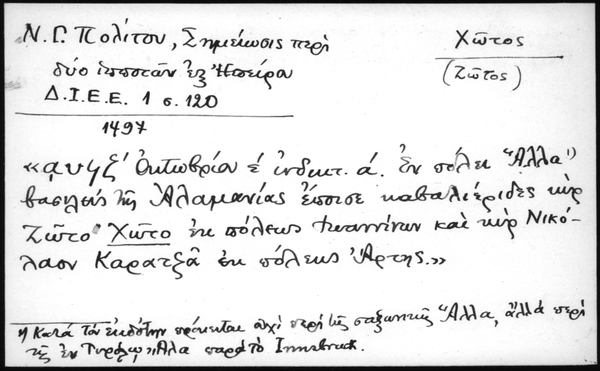 Ν. Γ. Πολίτου, Σημείωσις περὶ
δύο ἱπποτῶν ἐξ Ἠπείρου
Δ.Ι.Ε.Ε. 1 σ. 120
Χῶτος
(Ζῶτος)
1497
«αυϟζ' Ὀκτωβρίου έ ἰνδικτ. ά. Ἐν πόλει Ἅλλα¹⁾
βασιλεὺς τῆς Ἀλαμανίας ἔποισε καβαλιέριδες κὺρ
Ζῶτο Χῶτο ἐκ πόλεως Ἰωαννίνων καὶ κὺρ Νικό-
λαον Καρατζᾶ ἐκ πόλεως Ἄρτης.»
1) Κατὰ τὸν ἐκδότην πρόκειται οὐχὶ περὶ τῆς σαξωνικῆς Ἅλλα, ἀλλὰ περὶ
τῆς ἐν Τυρόλῳ Ἅλα παρὰ τὸ Innsbruck.